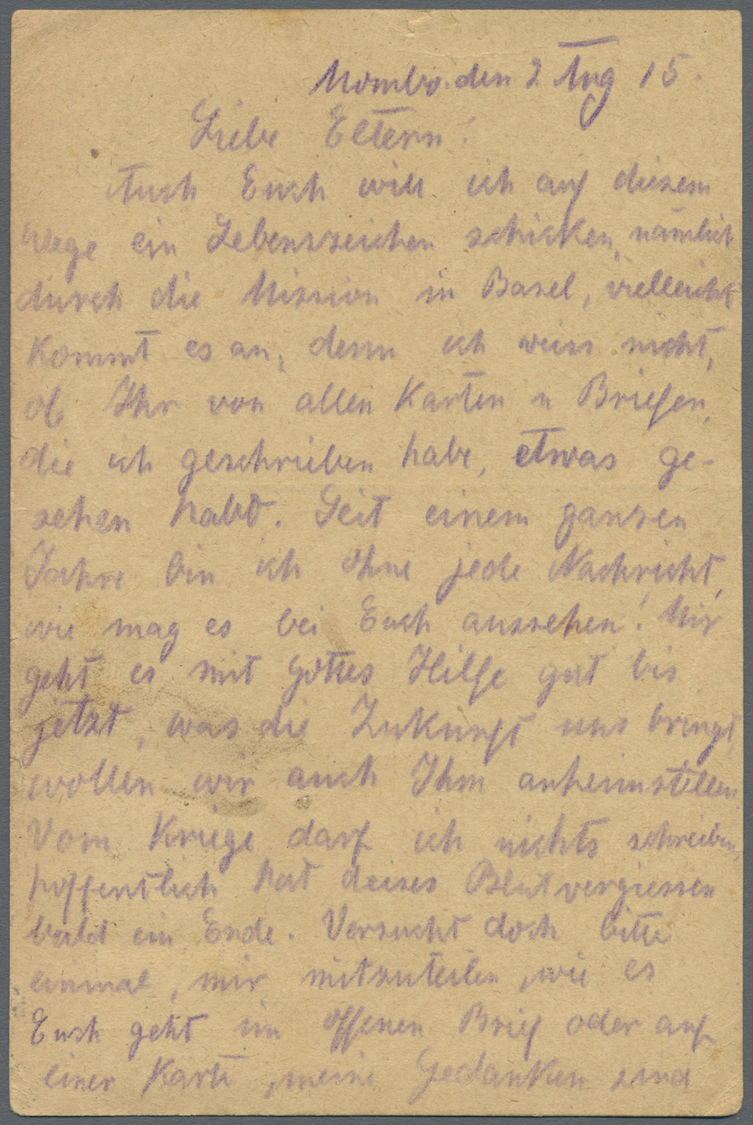 Mombo. den 2 Aug 15.
Liebe Eltern!
Auch Euch will ich auf diesem
Wege ein Lebenszeichen schicken, nämlich
durch die Mission in Basel, vielleicht
kommt es an, denn ich weiss nicht,
ob Ihr von allen Karten u Briefen,
die ich geschrieben habe, etwas ge-
sehen habt. Seit einem ganzen
Jahre bin ich ohne jede Nachricht,
wie mag es bei Euch aussehen! Mir
geht es mit Gottes Hilfe gut bis
jetzt, was die Zukunft uns bringt,
wollen wir auch Ihm anheimstellen
Vom Kriege darf ich nichts schreiben,
hoffentlich hat deises Blutvergiessen
bald ein Ende. Versucht doch bitte
einmal, mir mitzuteilen, wie es
Euch geht im offenen Brief oder auf
einer Karte, meine Gedanken sind